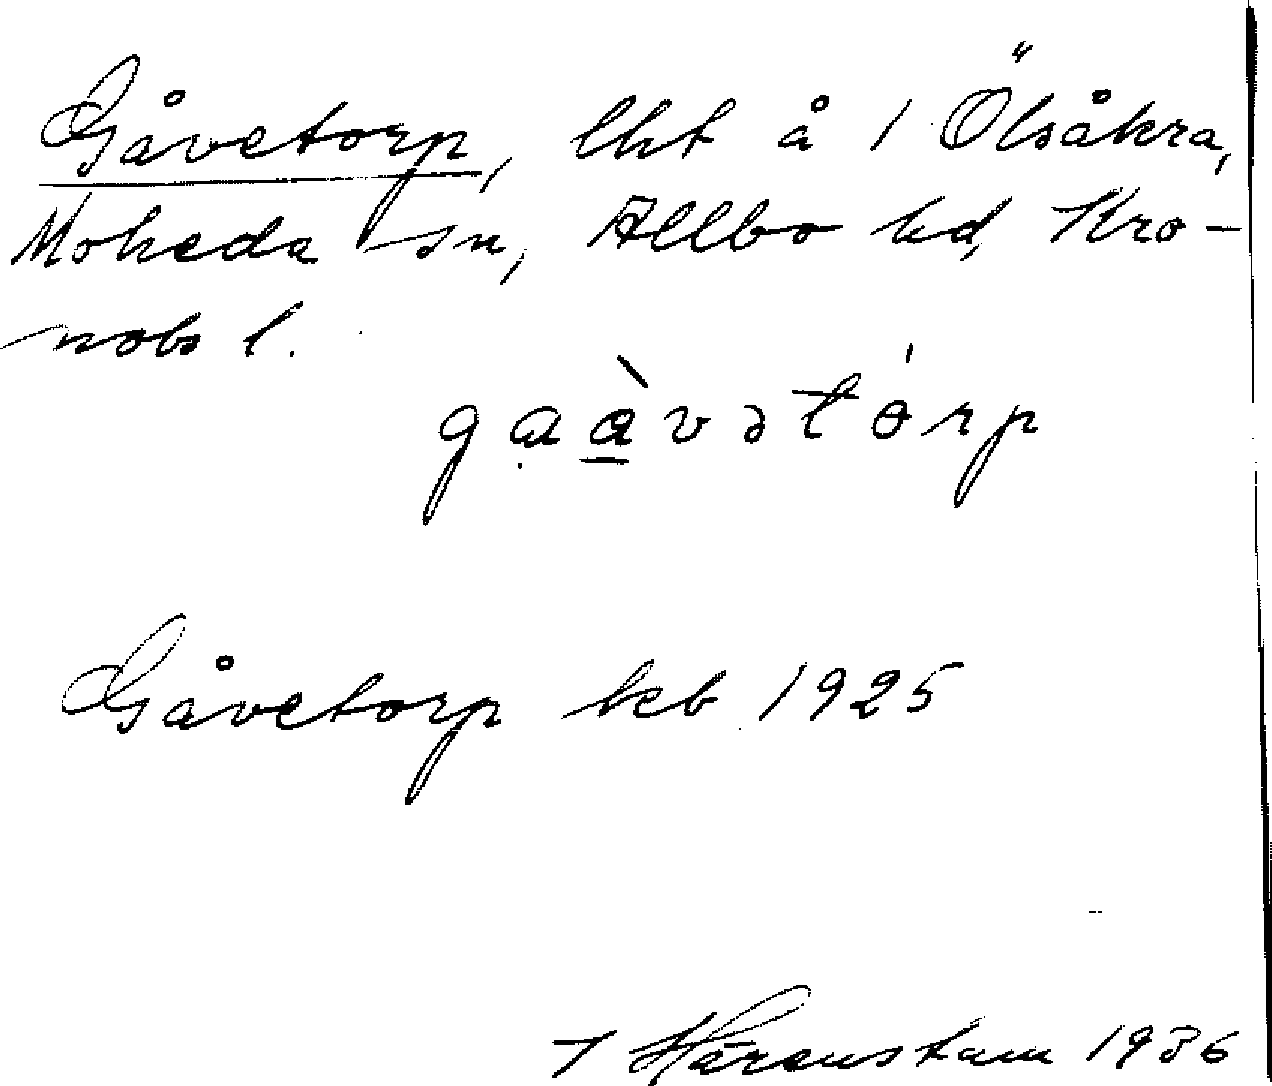 Gåvetorp, lht å 1 Ölsåkra,
Moheda sn, Allbo hd, Kro-
nobs l.
gaàvətórp
Gåvetorp kb 1925
Härenstam 1936